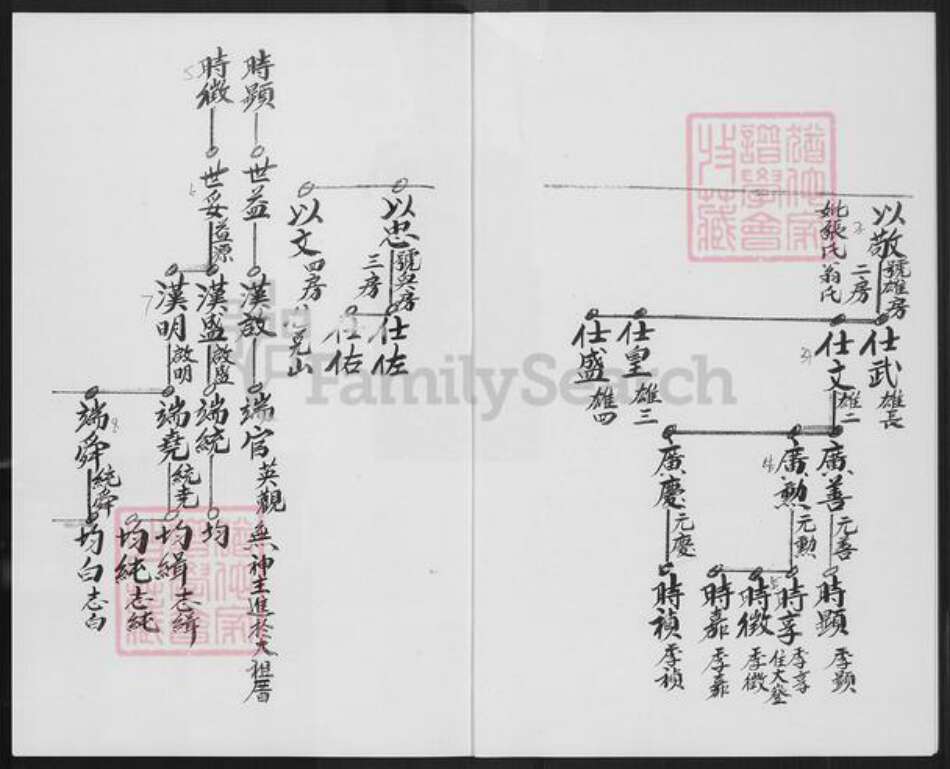 以敬
號雄房
二房
妣張氏 翁氏
仕武 雄長
仕文 雄二
仕皇 雄三
仕盛 雄四
廣善 元善
廣勲 元勲
廣慶 元慶
時顯 季顯
時享 季享
住大登
時徵 季徵
時嘉 季嘉
時禎 季禎
以忠
號
三房
仕佐
仕佑
以文 四房
時顯
世益
漢啟
端官 英觀 無神主進於大祖厝
時徵
世妥 益源
漢盛 啟盛
端統
均
漢明 啟明
端堯 統堯
均緝 志緝
均純 志純
端舜 純舜
均白 志白
FamilySearch